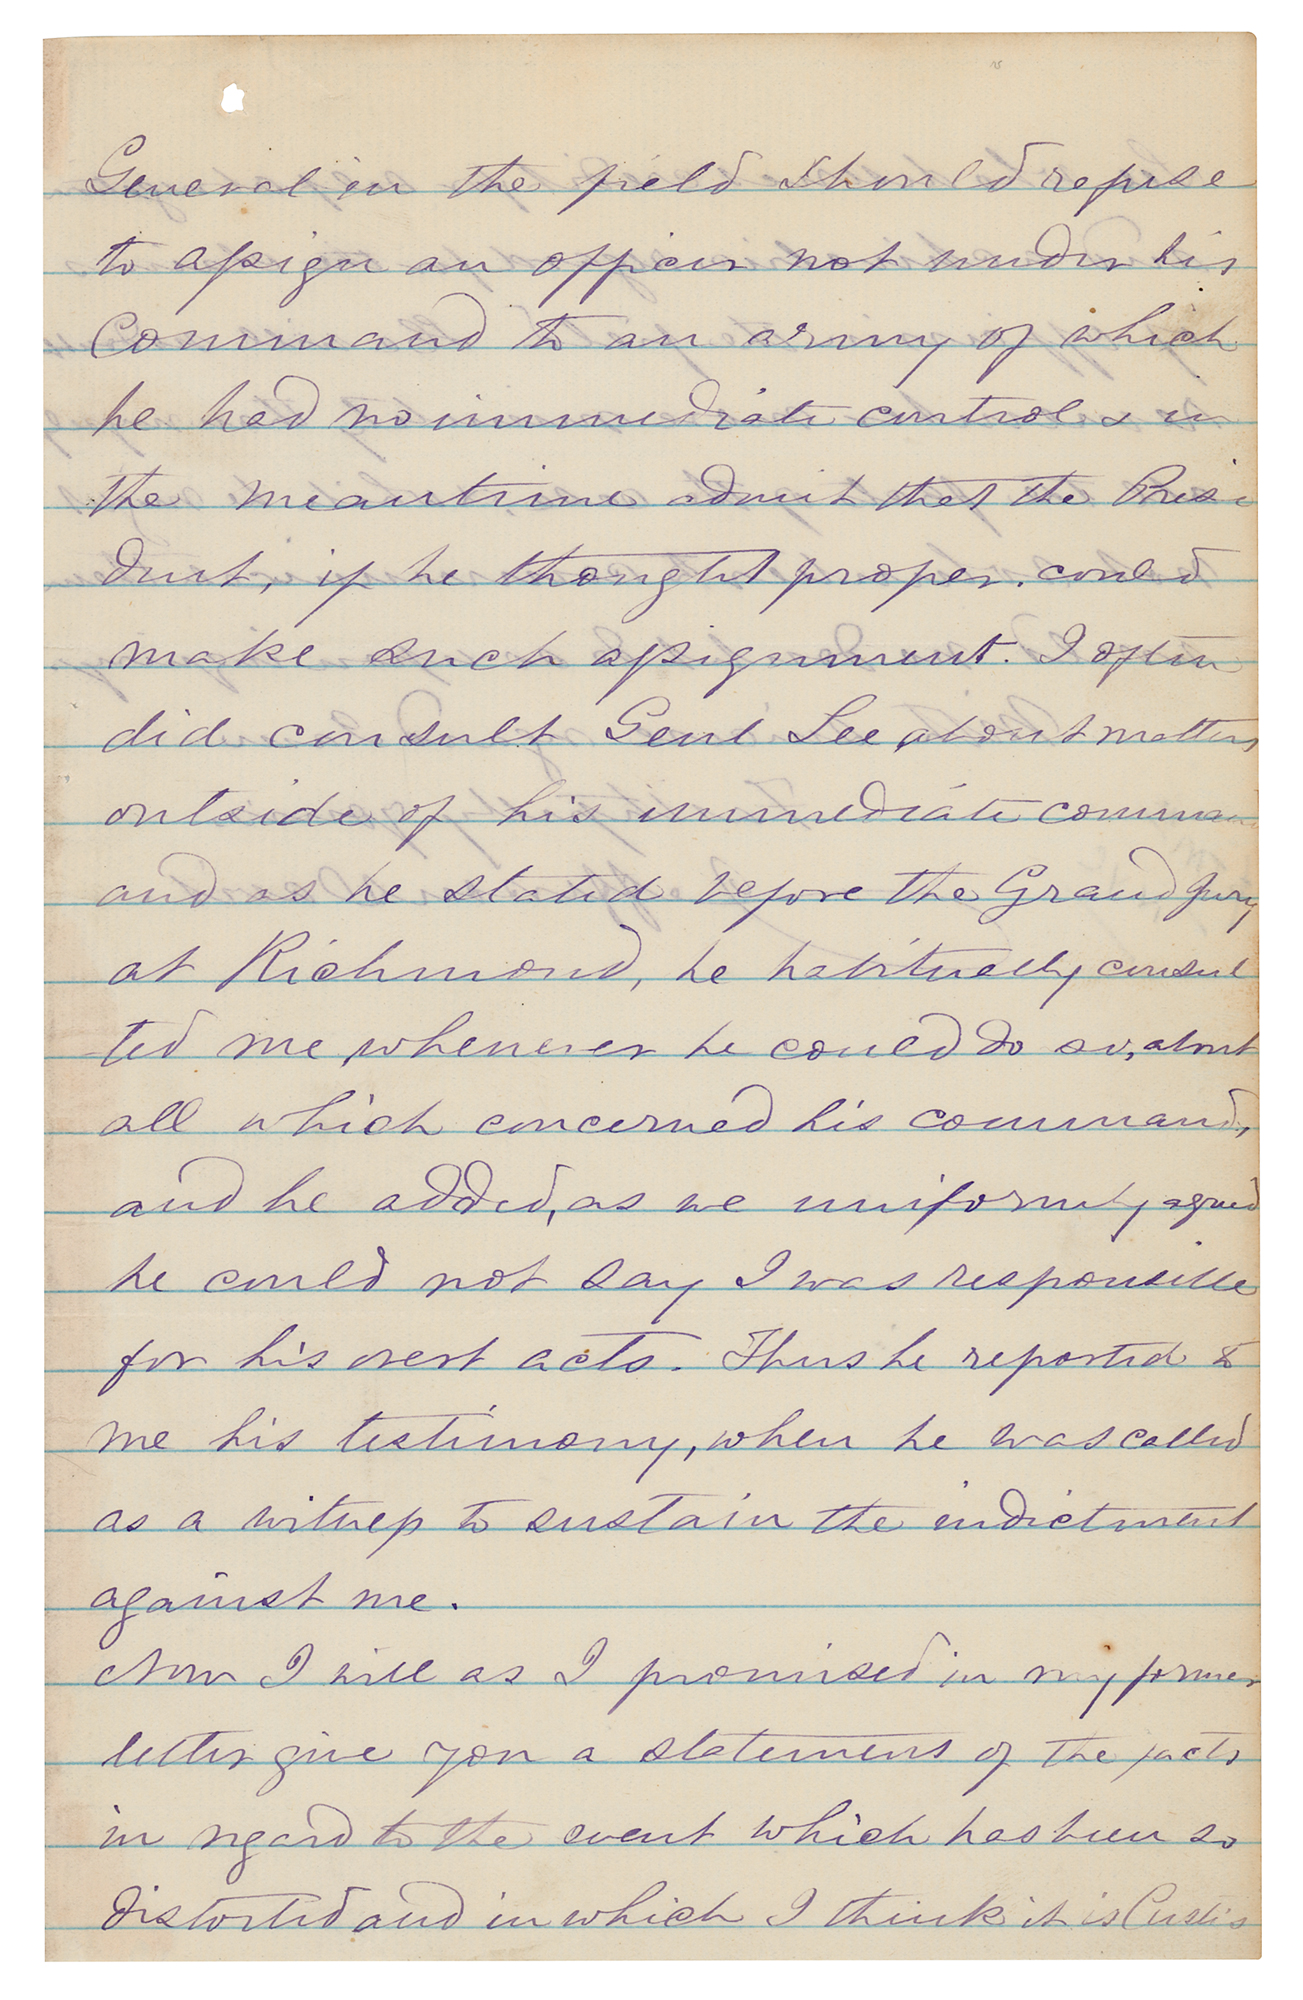 General in the field should refuse
to assign an officer not under his
Command to an army of which
he had no immediate control & in
the meantime admit that the Presi
dent, if he thought proper, could
make such assignment. I often
did consult Genl Lee about matters
outside of his immediate command
and as he stated before the Grand Jury
at Richmond, he habitually consul
ted me, whenever he could do so, about
all which concerned his command,
and he added, as we uniformly agreed
he could not say I was responsible
for his overt acts. Thus he reported to
me his testimony, when he was called
as a witness to sustain the indictment
against me.
Now I will as I promised in my former
letter give you a statement of the facts
in regard to the event which has been so
distorted and in which I think it is Custis